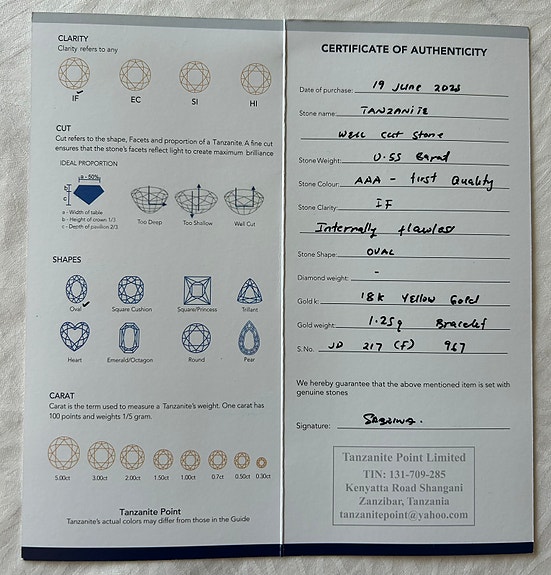 CLARITY
Clarity refers to any
IF ✓ EC SI HI
CUT
Cut refers to the shape, Facets and proportion of a Tanzanite. A fine cut
ensures that the stone's facets reflect light to create maximum brilliance
IDEAL PROPORTION
a - 50%
b
c
a - Width of table
b - Height of crown 1/3
c - Depth of pavilion 2/3
Too Deep Too Shallow Well Cut
SHAPES
Oval ✓ Square Cushion Square/Princess Trillant
Heart Emerald/Octagon Round Pear
CARAT
Carat is the term used to measure a Tanzanite's weight. One carat has
100 points and weights 1/5 gram.
5.00ct 3.00ct 2.00ct 1.50ct 1.00ct 0.7ct 0.50ct 0.30ct
Tanzanite Point
Tanzanite's actual colors may differ from those in the Guide
CERTIFICATE OF AUTHENTICITY
Date of purchase: 19 June 2023
Stone name: TANZANITE
Well cut stone
Stone Weight: 0.55 Carat
Stone Colour: AAA - first Quality
Stone Clarity: IF
Internally flawless
Stone Shape: OVAL
Diamond weight: -
Gold k: 18k Yellow Gold
Gold weight: 1.25g Bracelet
S.No. JD 217 (F) 967
We hereby guarantee that the above mentioned item is set with
genuine stones
Signature: Sabrina.
Tanzanite Point Limited
TIN: 131-709-285
Kenyatta Road Shangani
Zanzibar, Tanzania
tanzanitepoint@yahoo.com